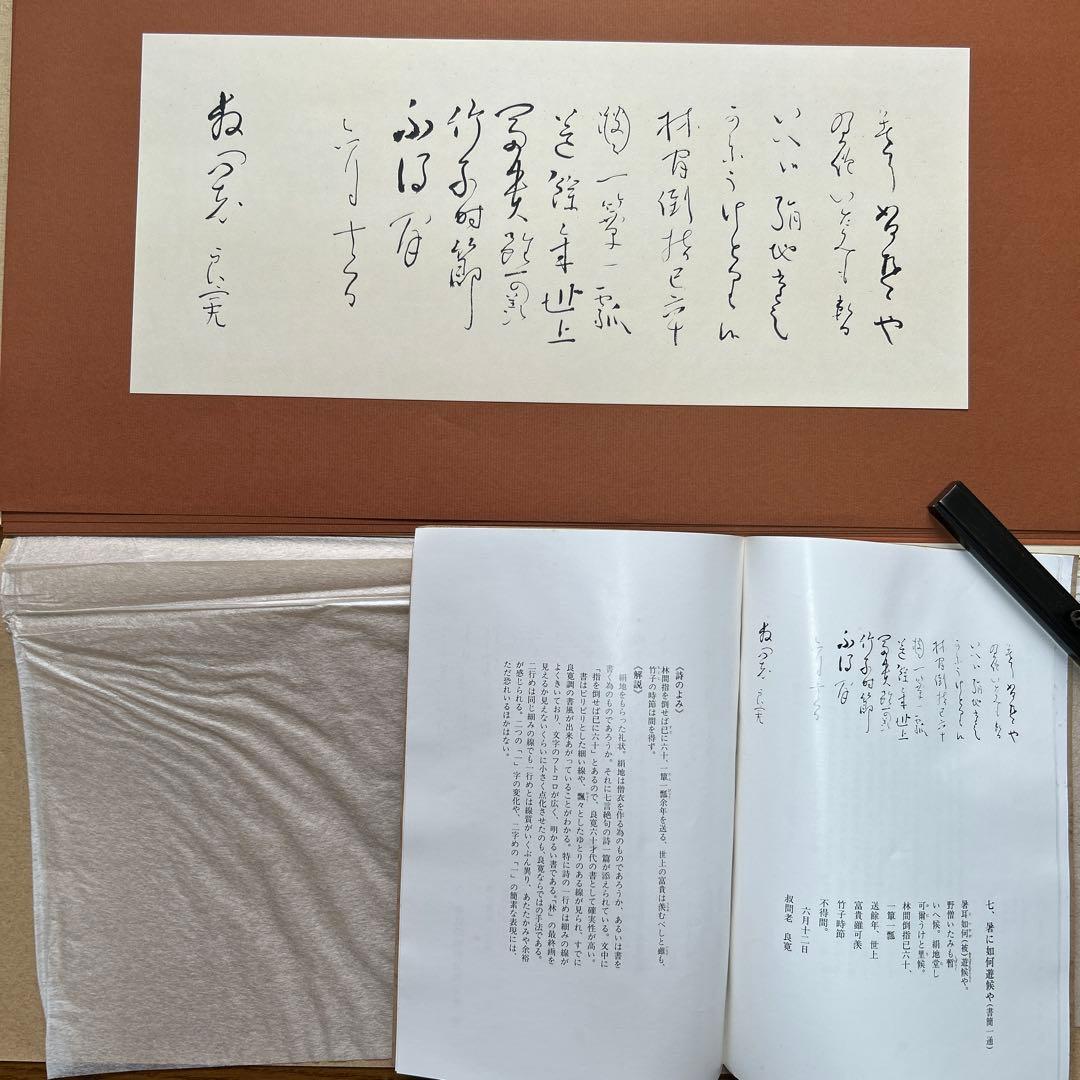 林間倒指已六十
一箪一瓢
送餘年世上
富貴雖可羨
竹子时節
不得間
六月十二日
叔問老 良寛
七、暑に如何遊候や(書簡一通)
暑耳如何(被)遊候や。
野僧いたみも暫
いへ候。絹地堂し
可爾うけと里候。
林間倒指已六十、
一簞一瓢
送餘年、世上
富貴雖可羨
竹子時節
不得間。
六月十二日
叔問老 良寛
《詩のよみ》
林間指を倒せば已に六十、一簞一瓢余年を送る、世上の富貴は羨むべしと雖も、
竹子の時節は間を得ず。
《解説》
絹地をもらった礼状。絹地は僧衣を作る為のものであろうか、あるいは書を
書く為のものであろうか。それに七言絶句の詩一篇が添えられている。文中に
「指を倒せば已に六十」とあるので、良寛六十才代の書として確実性が高い。
書はピリピリとした細い線や、飄々としたゆとりのある線が見られ、すでに
良寛調の書風が出来あがっていることがわかる。特に詩の一行めは細みの線が
よくきいており、文字のフトコロが広く、明かるい書である。「林」の最終画を
見えるか見えないくらいに小さく点化させたのも、良寛ならではの手法である。
二行めは同じ細みの線でも一行めとは線質がいくぶん異り、あたたかみや余裕
が感じられる。二つの「一」字の変化や、二字めの「一」の簡素な表現には、
ただ恐れいるほかはない。